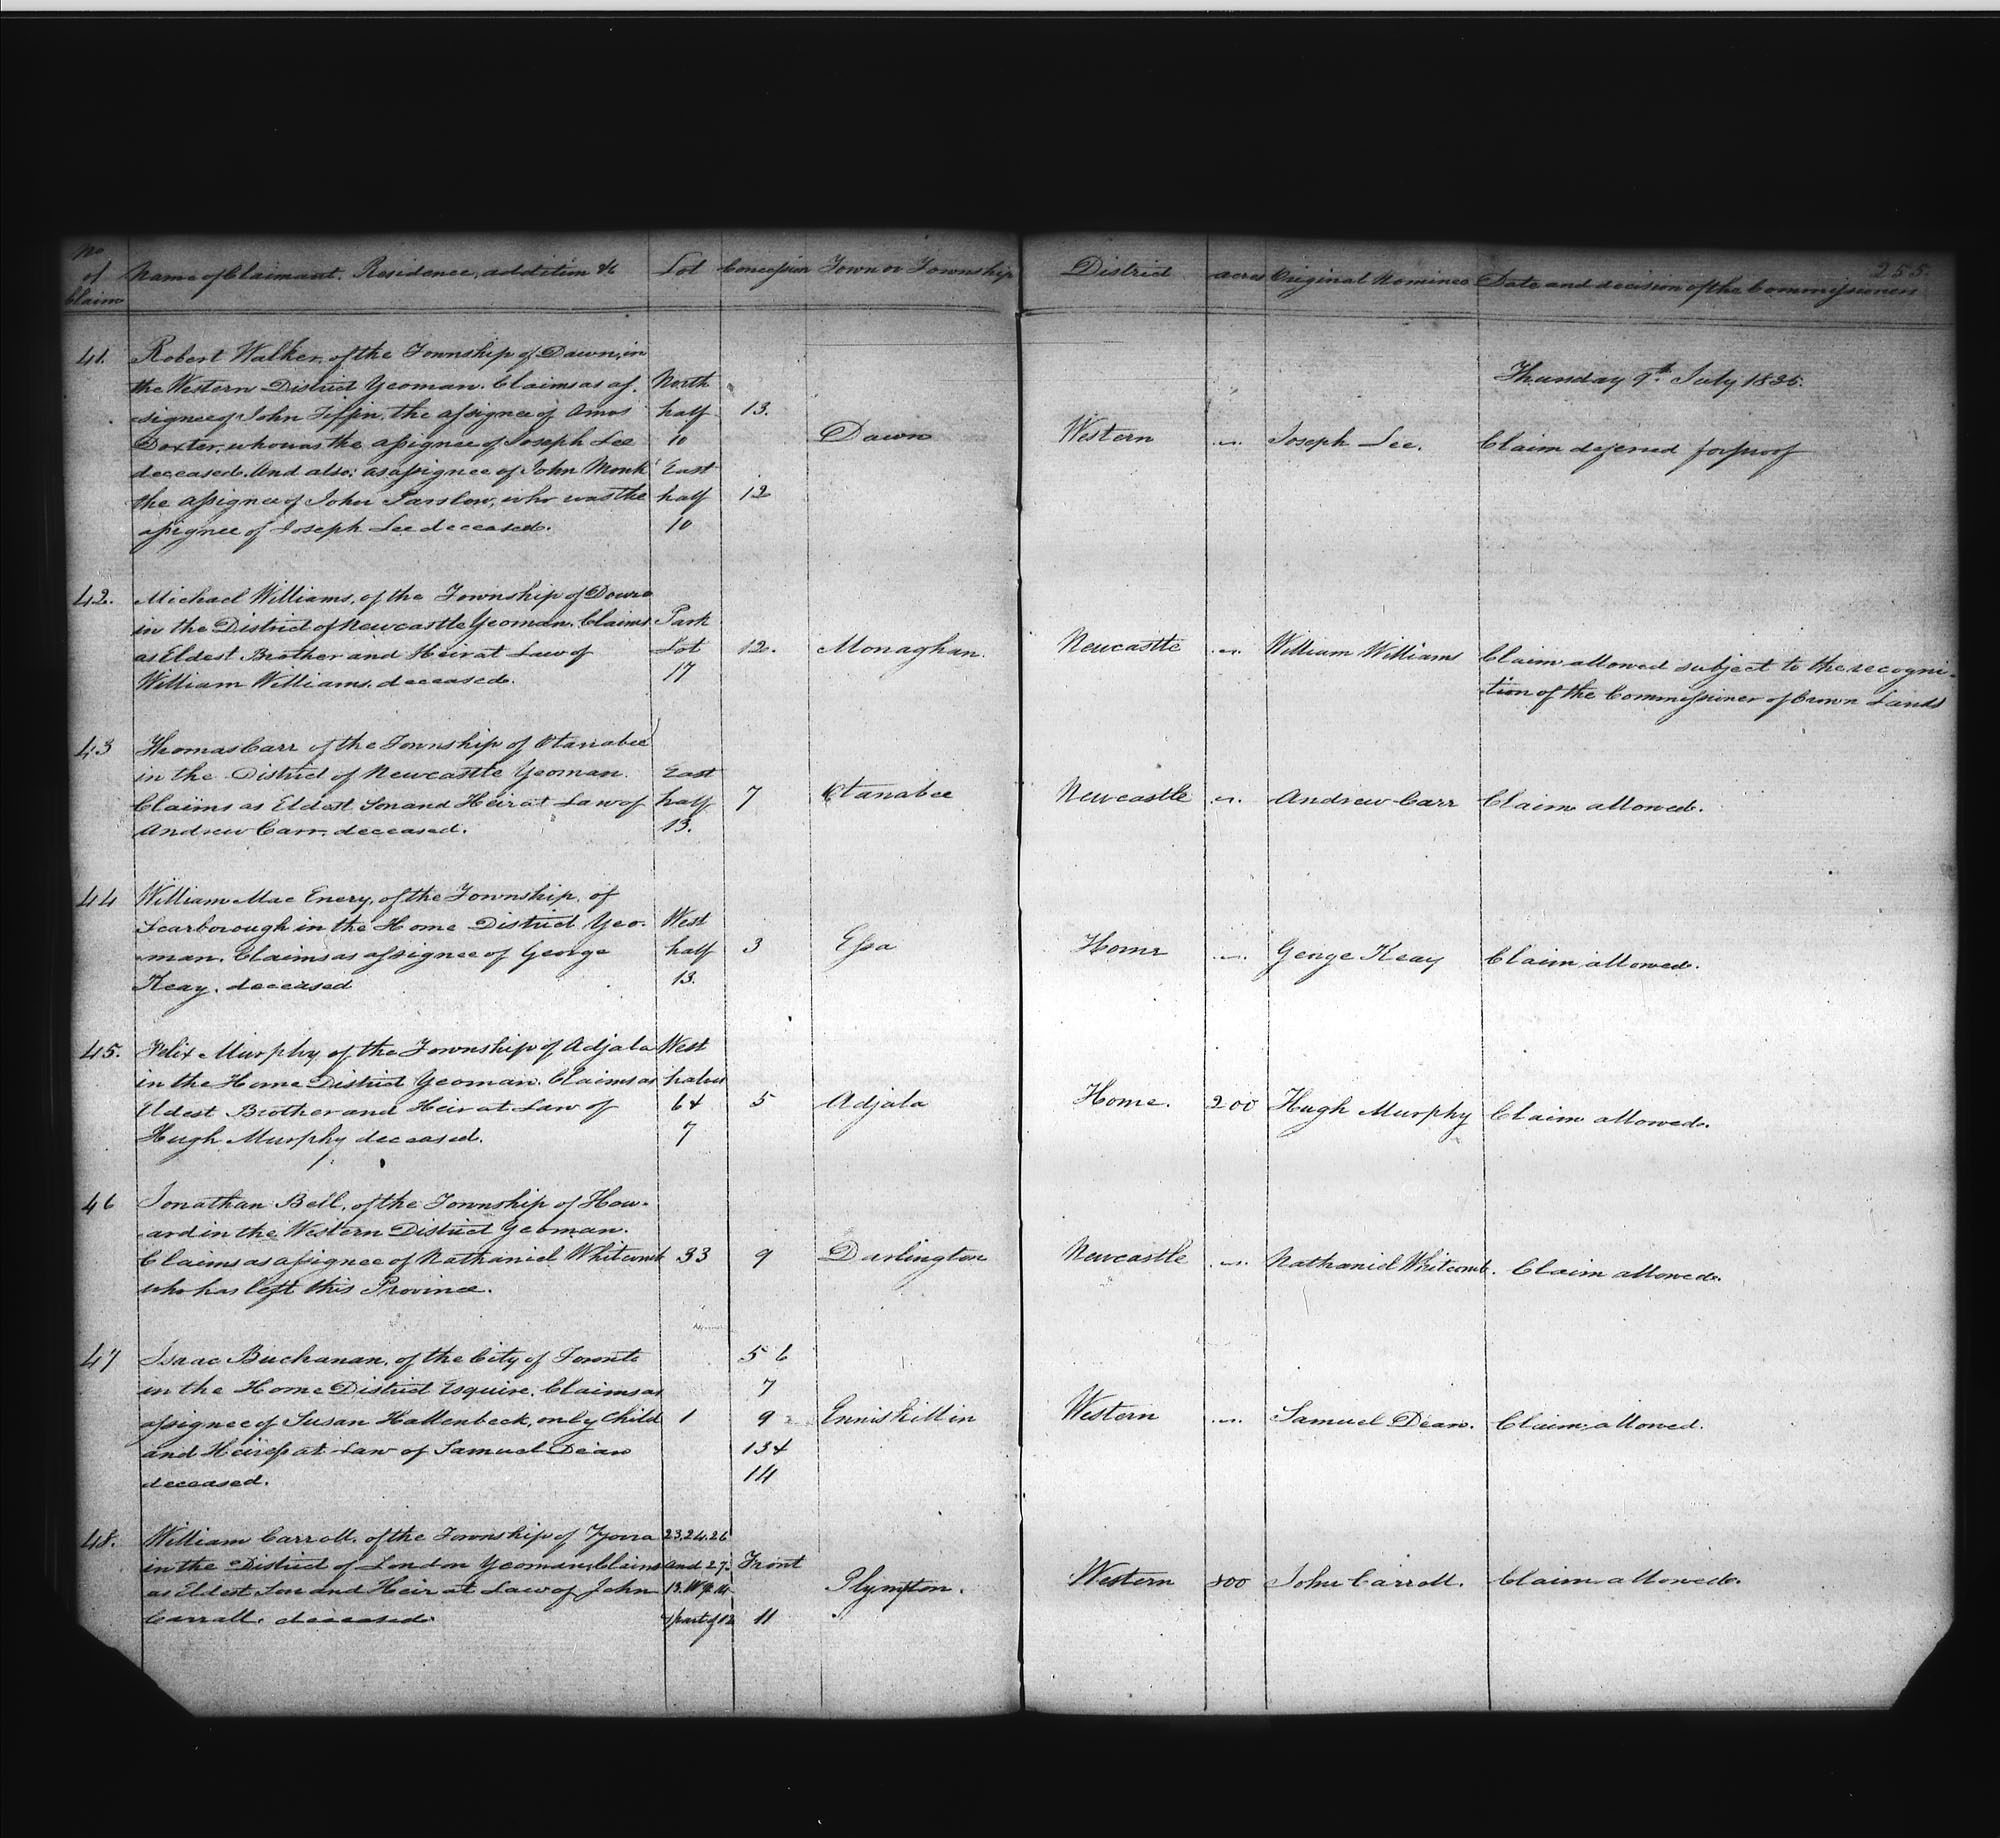 255.
No of Claim | Name of Claimant. Residence, addition &c | Lot | Concession | Town or Township | District | acres | Original Nominee | Date and decision of the Commissioners
Thursday 9th July 1835.
41. Robert Walker, of the Township of Dawn, in
the Western District Yeoman. Claims as as, | North
signee of John Tiffin, the assignee of Amos | half | 13.
Dexter, who was the assignee of Joseph Lee | 10 | Dawn | Western | " | Joseph Lee. | Claim deferred for proof
deceased. And also: as assignee of John Monk | East
the assignee of John Parslow, who was the | half | 12
assignee of Joseph Lee deceased. | 10
42. Michael Williams, of the Township of Douro
in the District of Newcastle Yeoman. Claims | Park
as Eldest Brother and Heir at Law of | Lot | 12. | Monaghan. | Newcastle | " | William Williams | Claim allowed subject to the recogni-
William Williams. deceased. | 17 | tion of the Commissioner of Crown Lands
43 Thomas Carr of the Township of Otanabee
in the District of Newcastle Yeoman. | East
Claims as Eldest Son and Heir at Law of | half | 7 | Otanabee | Newcastle | " | Andrew Carr | Claim allowed.
Andrew Carr. deceased. | 13.
44 William Mac Enery, of the Township, of
Scarborough in the Home District Yeo- | West
man. Claims as assignee of George | half | 3 | Essa | Home | " | George Keay | Claim allowed.
Keay. deceased | 13.
45. Felix Murphy, of the Township of Adjala | West
in the Home District Yeoman. Claims as | halves
Eldest Brother and Heir at Law of | 6 & | 5 | Adjala | Home. | 200 | Hugh Murphy | Claim allowed.
Hugh Murphy deceased. | 7
46 Jonathan Bell, of the Township of How-
ard in the Western District Yeoman.
Claims as assignee of Nathaniel Whitcomb | 33 | 9 | Darlington | Newcastle | " | Nathaniel Whitcomb. | Claim allowed.
who has left this Province.
47 Isaac Buchanan, of the City of Toronto | 5 6
in the Home District Esquire. Claims as | 7
assignee of Susan Hallenbeck, only Child | 1 | 9 | Enniskillin | Western | " | Samuel Dean. | Claim allowed.
and Heiress at Law of Samuel Dean | 13 &
deceased. | 14
48. William Carroll. of the Township of | 23.24.26
in the District of London Yeoman Claims | and 27. | Front
as Eldest Son and Heir at Law of John | Plympton. | Western | 800 | John Carroll. | Claim allowed.
Carroll. deceased. | & part of 12 | 11